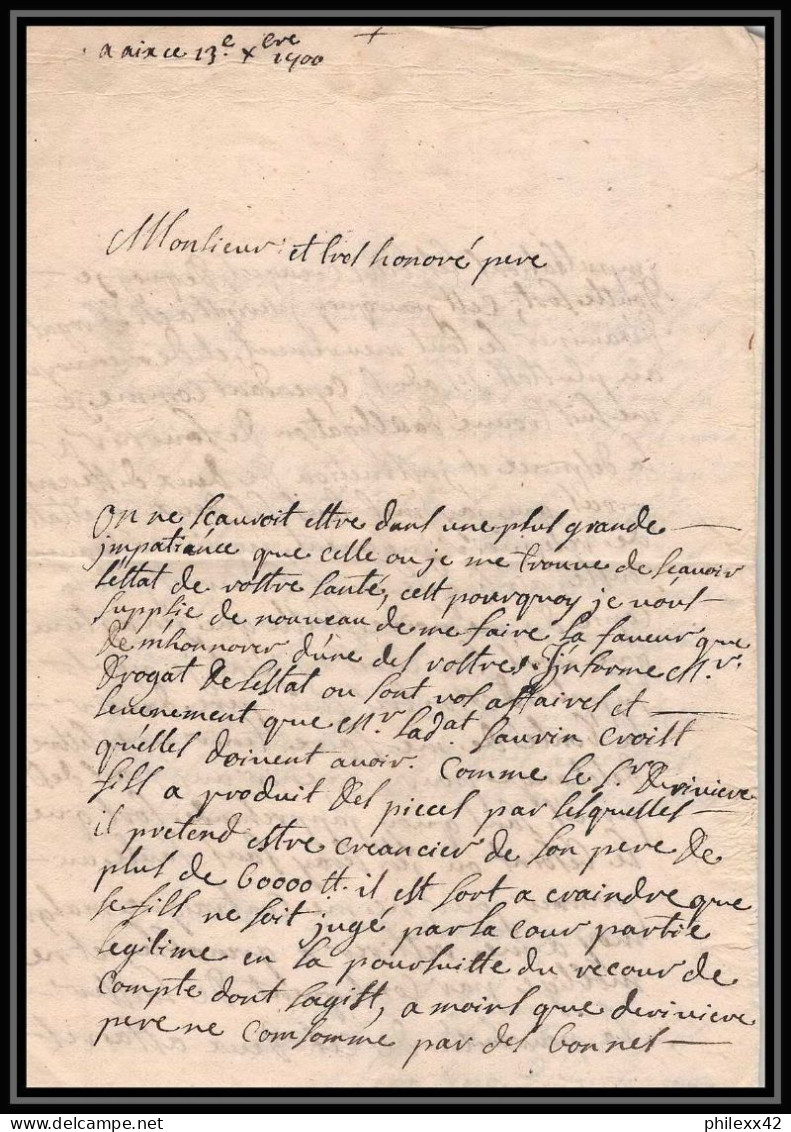 a aix ce 13e. xbre 1700
Monsieur et tres honoré pere
On ne scauroit estre dans une plus grande
impatiance que celle ou je me trouve de scavoir
l'estat de vostre santé, cest pourquoy je vous
supplie de nouveau de me faire la faveur que
de m'honnorer d'une des vostres. J'informe Mr.
Drogat de lestat ou sont vos affaires et
levenement que Mr. Ladat. Saurin croist
qu'elles doivent avoir. Comme le Sr. Deriviere
fils a produit des pieces par lesquelles
il pretend estre creancier de son pere de
plus de 60000 tt. il est fort a craindre que
le fils ne soit jugé par la cour partie
legitime en la poursuitte du recour de
compte dont sagist, a moins que deriviere
pere ne consomme par des bonnes
philexx42